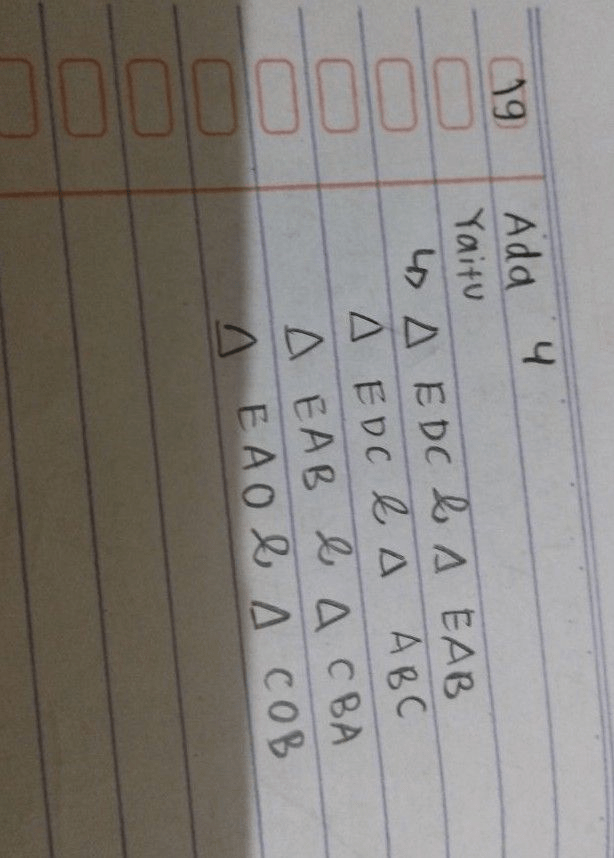 19 Ada 4
Yaitu
↳ Δ EDC & Δ EAB
Δ EDC & Δ ABC
Δ EAB & Δ CBA
Δ EAO & Δ COB